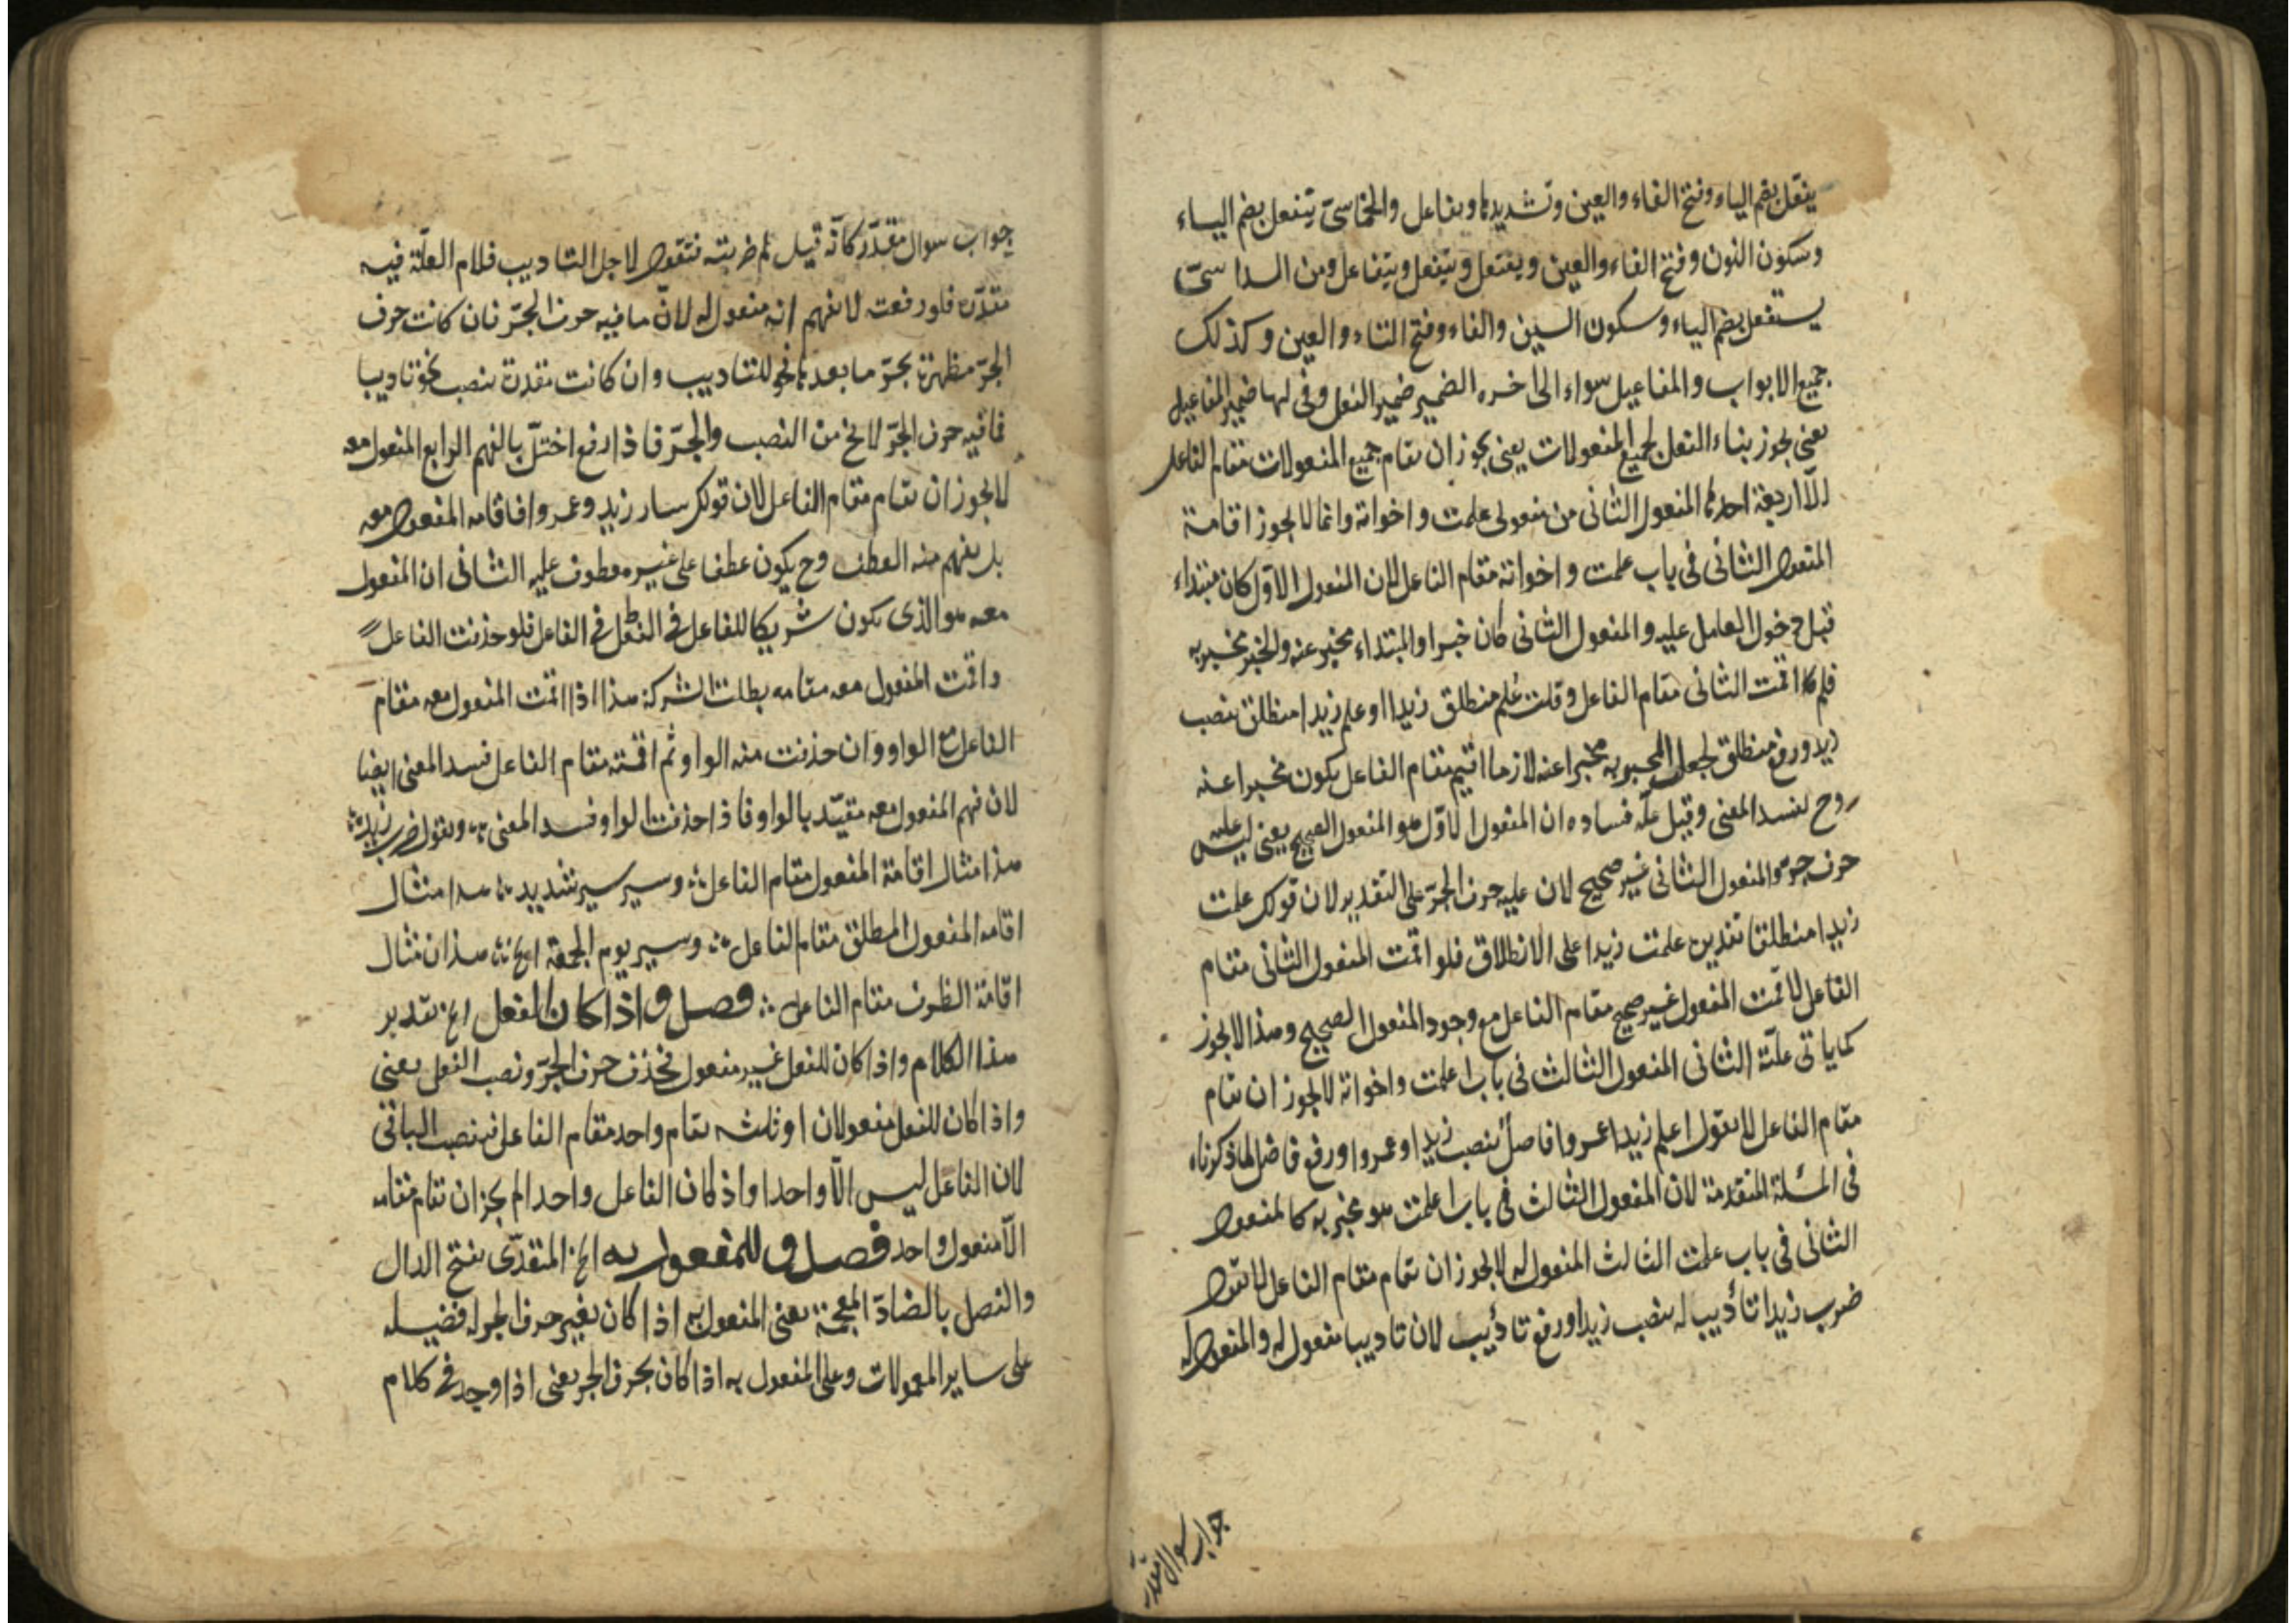 يفعّل بضم الياء وفتح الفاء والعين وتشديدها ويفاعل والخماسىّ ينفعل بضم الياء
وسكون النون وفتح الفاء والعين ويفتعل ويتفعل ويتفاعل ومن السداسىّ
يستفعل بضم الياء وسكون السين والفاء وفتح التاء والعين وكذلك
جميع الابواب والمفاعيل سواء الى اخره الضمير ضمير الفعل وفى لها ضمير المفاعيل
يعنى يجوز بناء الفعل لجميع المفعولات يعنى يجوز ان تقام جميع المفعولات مقام الفاعل
الّا اربعة احدها المفعول الثانى من مفعولى علمت واخواته وانما لا يجوز اقامة
المفعول الثانى فى باب علمت واخواته مقام الفاعل لان المفعول الاوّل كان مبتداء
قبل دخول العامل عليه والمفعول الثانى كان خبرا والمبتداء مخبر عنه والخبر مخبر به
فلما اقمت الثانى مقام الفاعل وقلت عُلم منطلق زيدا او علم زيدا منطلق بنصب
زيد ورفع منطلق لجعل المخبر به مخبرا عنه لان ما اقيم مقام الفاعل يكون مخبرا عنه
وح يفسد المعنى وقيل علّة فساده ان المفعول الاوّل هو المفعول الصحيح يعنى ليس عليه
حرف جر والمفعول الثانى غير صحيح لان عليه حرف الجرّ على التقدير لان قولك علمت
زيدا منطلقا تقديره علمت زيدا على الانطلاق فلو اقمت المفعول الثانى مقام
الفاعل لاقمت المفعول غير صحيح مقام الفاعل مع وجود المفعول الصحيح وهذا لا يجوز
كما ياتى علّته الثانى المفعول الثالث فى باب اعلمت واخواته لا يجوز ان تقام
مقام الفاعل لا تقول اعلم زيدا عمروا فاضل بنصب زيدا وعمروا ورفع فاضل لما ذكرناه
فى المسئلة المتقدمة لان المفعول الثالث فى باب اعلمت هو مخبر به كالمفعول
الثانى فى باب علمت الثالث المفعول له لا يجوز ان تقام مقام الفاعل لا تقول
ضرب زيدا تأديب له بنصب زيدا ورفع تأديب لان تاديبا مفعول له والمفعول له
جواب سوال مقدّر
جواب سوال مقدّر كانّه قيل لم ضربته فتقول لاجل التاديب فلام العلّة فيه
مقدّرة فلو رفعت لا يفهم انه مفعول له لانّ ما فيه حرف الجرّ فان كانت حرف
الجرّ مظهرة يجرّ ما بعدها نحو للتاديب وان كانت مقدرة ينصب نحو تاديبا
فما فيه حرف الجرّ لا يخ من النصب والجرّ فاذا رفع اختلّ بالفهم الرابع المفعول معه
لا يجوز ان تقام مقام الفاعل لان قولك سار زيد وعمروا فاقامه المفعول معه
بل يفهم منه العطف وح يكون عطفا على غيره معطوف عليه الثانى ان المفعول
معه هو الذى يكون شريكا للفاعل فى الفعل فلو حذفت الفاعل
واقمت المفعول معه مقامه بطلت الشركة هذا اذا اقمت المفعول معه مقام
الفاعل مع الواو وان حذفت منه الواو ثم اقمته مقام الفاعل فسد المعنى ايضا
لان فهم المفعول معه مقيّد بالواو فاذا حذفت الواو فسد المعنى وتقول ضرب زيد
هذا مثال اقامة المفعول مقام الفاعل وسير سير شديد هذا مثال
اقامه المفعول المطلق مقام الفاعل وسير يوم الجمعة الخ هذان مثال
اقامة الظروف مقام الفاعل فصل واذا كان الفعل الخ تقدير
هذا الكلام واذا كان للفعل غير مفعول فحذف حرف الجرّ ونصب الفعل يعنى
واذا كان للفعل مفعولان او ثلثه تقام واحد مقام الفاعل فينصب الباقى
لان الفاعل ليس الّا واحدا واذ كان الفاعل واحدا لم يجز ان تقام مقامه
الّا مفعول واحد فصل وللمفعول به الخ المتعدّى بفتح الدال
والفصل بالضاد المعجمة يعنى المفعول به اذا كان بغير حرف الجر له فضيلة
على ساير المعمولات وعلى المفعول به اذا كان بحرف الجر يعنى اذا وجد فى كلام